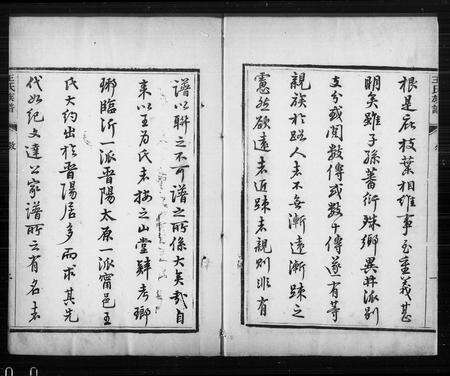 根是庇枝葉相維事至重義甚
明矣雖子孫蕃衍殊鄉異井派別
支分或閱數傳或數十傳遂有等
親族於路人者不無漸遠漸踈之
憲然欲遠者近踈者親則非有
譜以聯之不可譜之所係大矣哉自
來以王為氏者按之山堂肆考瑯
琊臨沂一派晋陽太原一派甯邑王
氏大約出於晋陽居多而求其先
代如紀文達公家譜所云有名者
王氏族譜